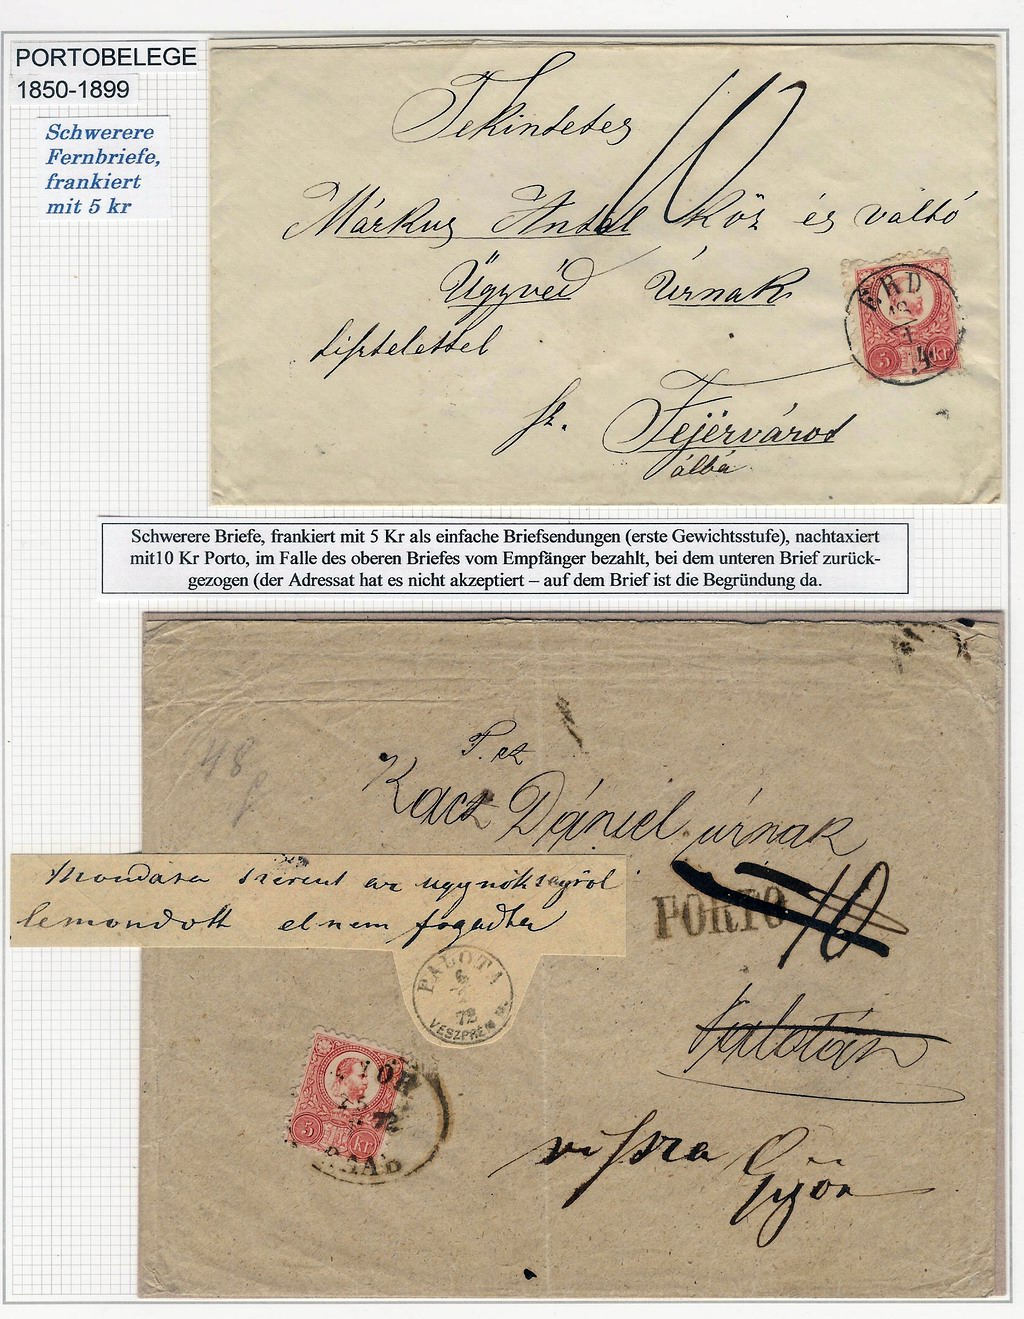 PORTOBELEGE
1850-1899
Schwerere
Fernbriefe,
frankiert
mit 5 kr
Tekintetes
10
Márkus Antal köz és váltó
Ügyvéd Úrnak
tisztelettel
sz. Fejérvárod
alba
ERD
5 kr
Schwerere Briefe, frankiert mit 5 Kr als einfache Briefsendungen (erste Gewichtsstufe), nachtaxiert
mit10 Kr Porto, im Falle des oberen Briefes vom Empfänger bezahlt, bei dem unteren Brief zurück-
gezogen (der Adressat hat es nicht akzeptiert – auf dem Brief ist die Begründung da.
48
T. cz
Kacz Dániel úrnak
Mondása szerint az ugynökségröl
lemondott elnem fogadta
PORTO 10
PALOTA
6
72
VESZPRÉM M.
Palotán
72
5 kr
RAAB
vissza
Györ